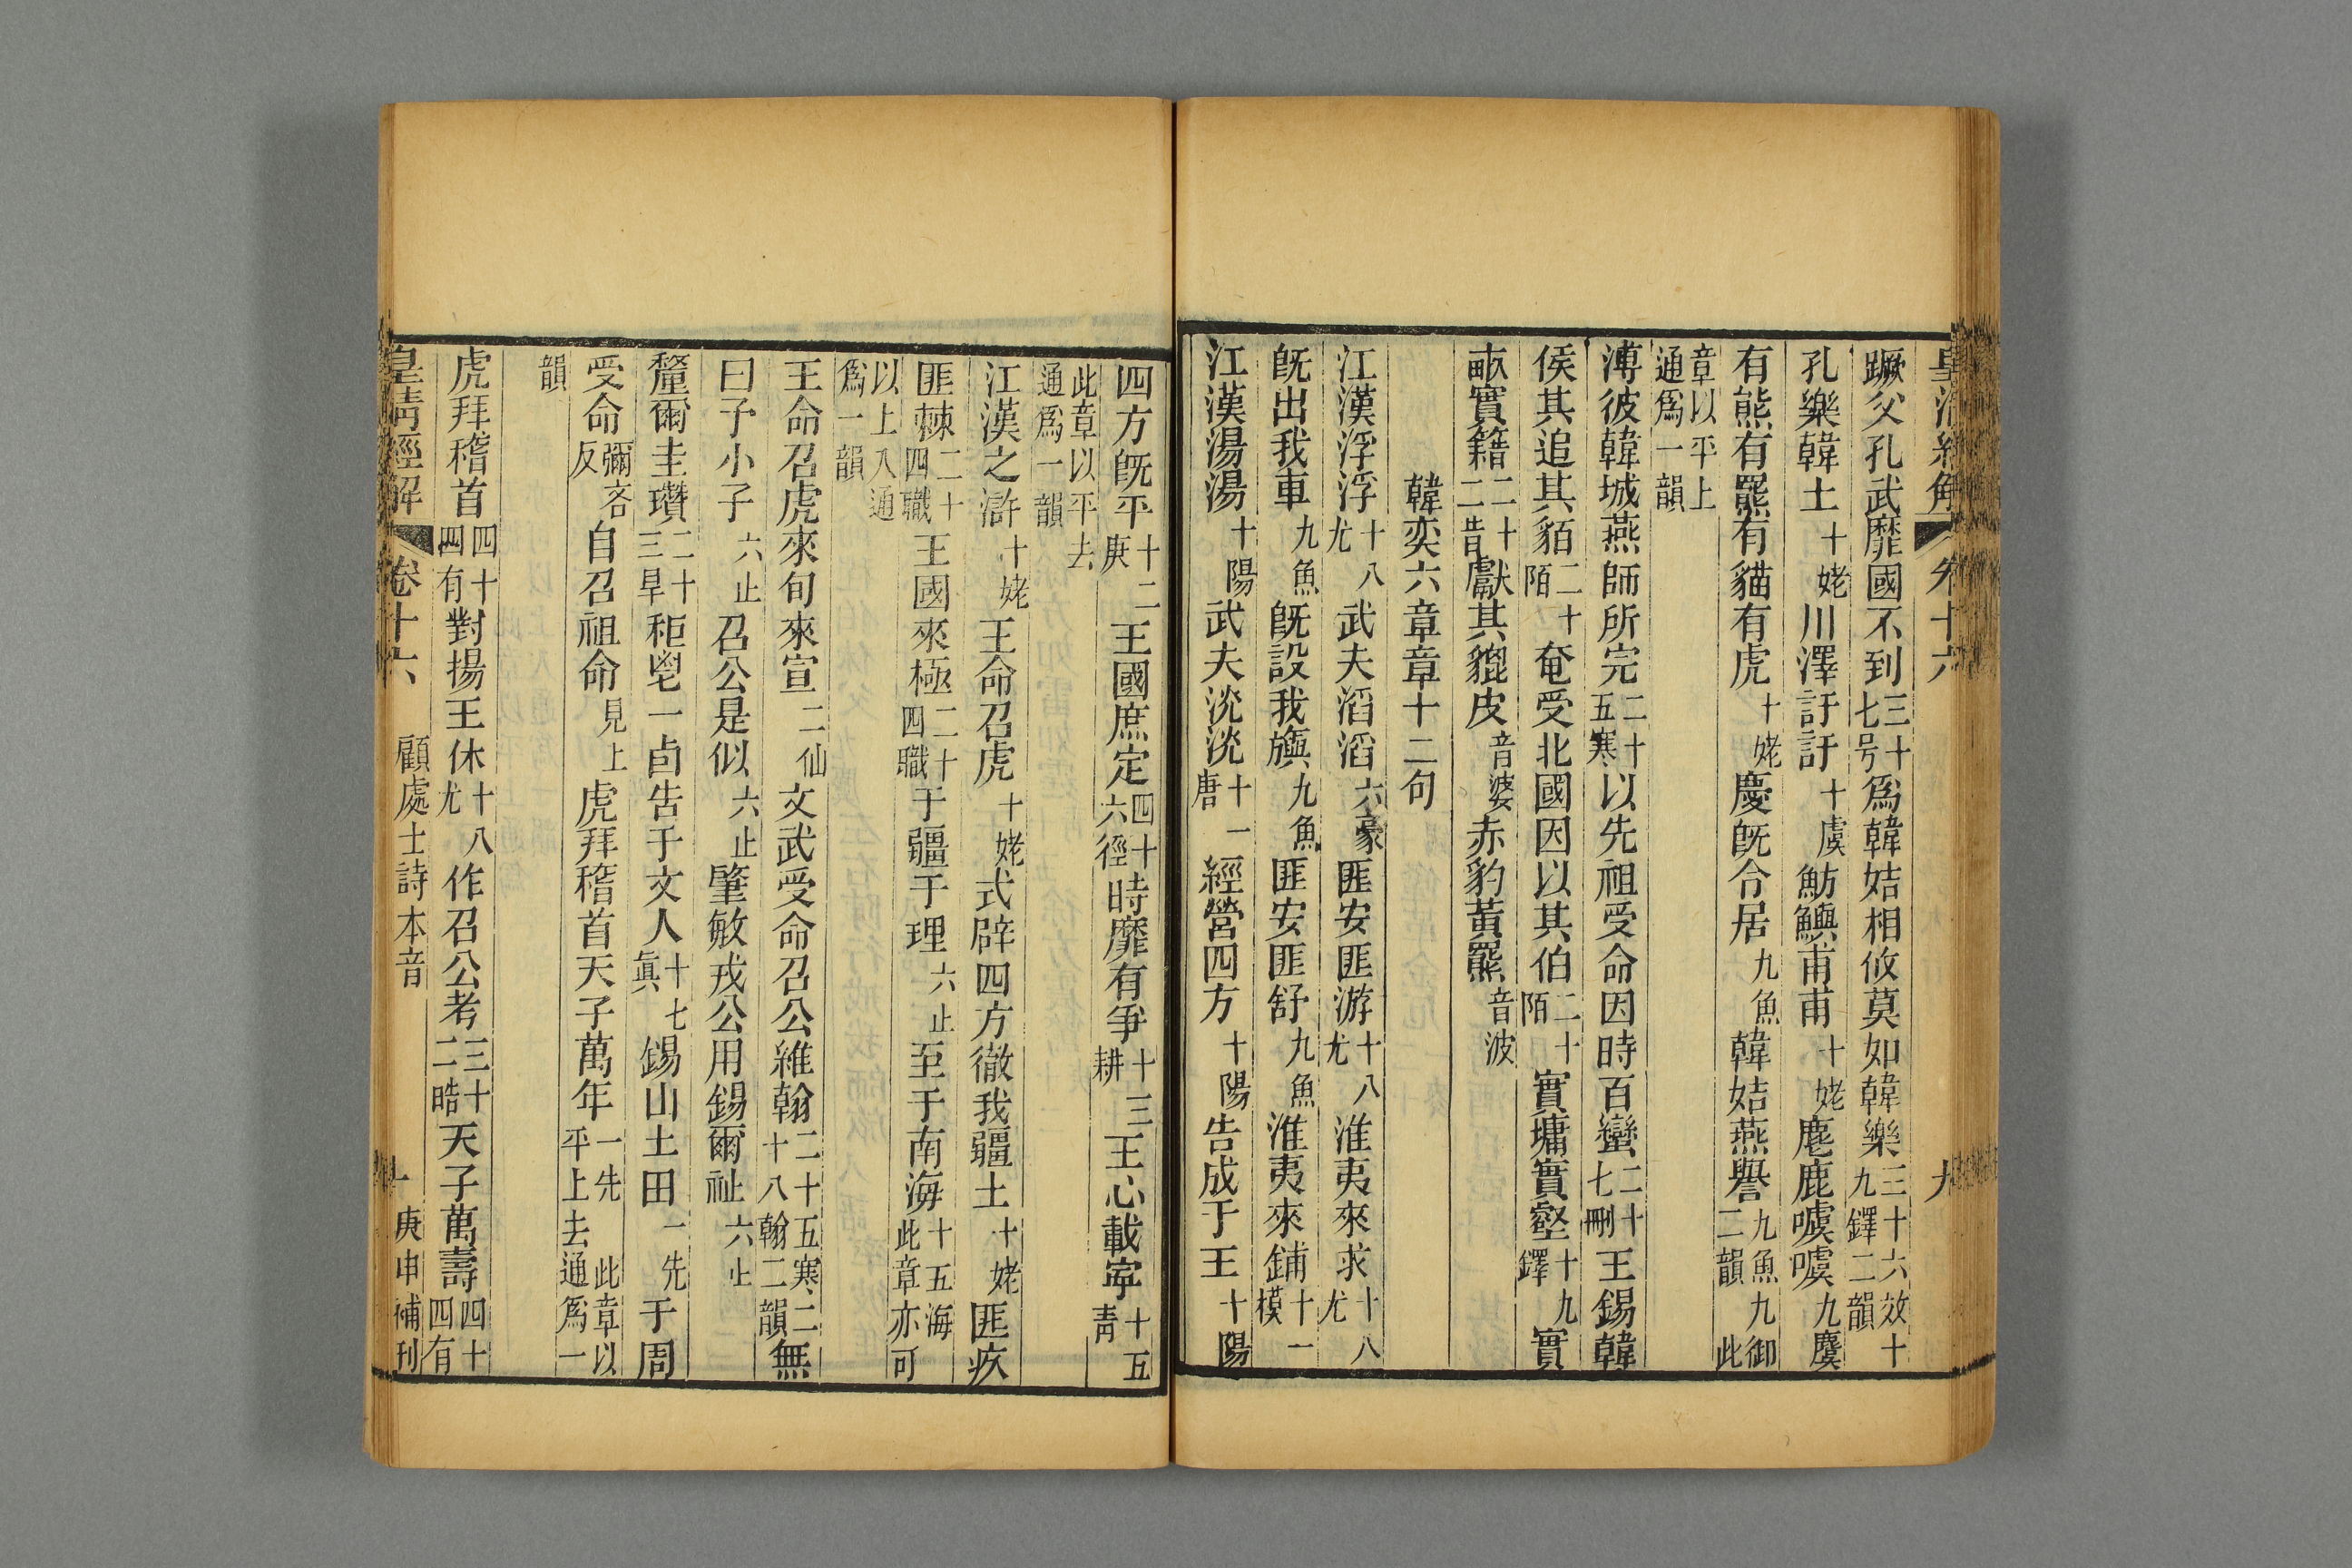 皇清經解 卷十六 九
蹶父孔武靡國不到三十七号爲韓姞相攸莫如韓樂三十六效十九鐸二韻
孔樂韓土十姥川澤訏訏十虞魴鱮甫甫十姥麀鹿噳噳九麌
有熊有羆有貓有虎十姥慶旣令居九魚韓姞燕譽九魚九御二韻此
章以平上通爲一韻
溥彼韓城燕師所完二十五寒以先祖受命因時百蠻二十七刪王錫韓
侯其追其貊二十陌奄受北國因以其伯二十陌實墉實壑十九鐸實
畞實籍二十二昔獻其貔皮音婆赤豹黃羆音波
韓奕六章章十二句
江漢浮浮十八尤武夫滔滔六豪匪安匪游十八尤淮夷來求十八尤
旣出我車九魚旣設我旟九魚匪安匪舒九魚淮夷來鋪十一模
江漢湯湯十陽武夫洸洸十一唐經營四方十陽告成于王十陽
四方旣平十二庚王國庶定四十六徑時靡有爭十三耕王心載寜十五青
此章以平去通爲一韻
江漢之滸十姥王命召虎十姥式辟四方徹我疆土十姥匪疚
匪棘二十四職王國來極二十四職于疆于理六止至于南海十五海此章亦可
以上入通爲一韻
王命召虎來旬來宣二仙文武受命召公維翰二十五寒二十八翰二韻無
曰予小子六止召公是似六止肇敏戎公用錫爾祉六止
釐爾圭瓚二十三旱秬鬯一卣告于文人十七眞錫山土田一先于周
受命彌吝反自召祖命見上虎拜稽首天子萬年一先 此章以平上去通爲一
韻
虎拜稽首四十四有對揚王休十八尤作召公考三十二晧天子萬壽四十四有
皇清經解 卷十六 顧處士詩本音 十 庚申補刊